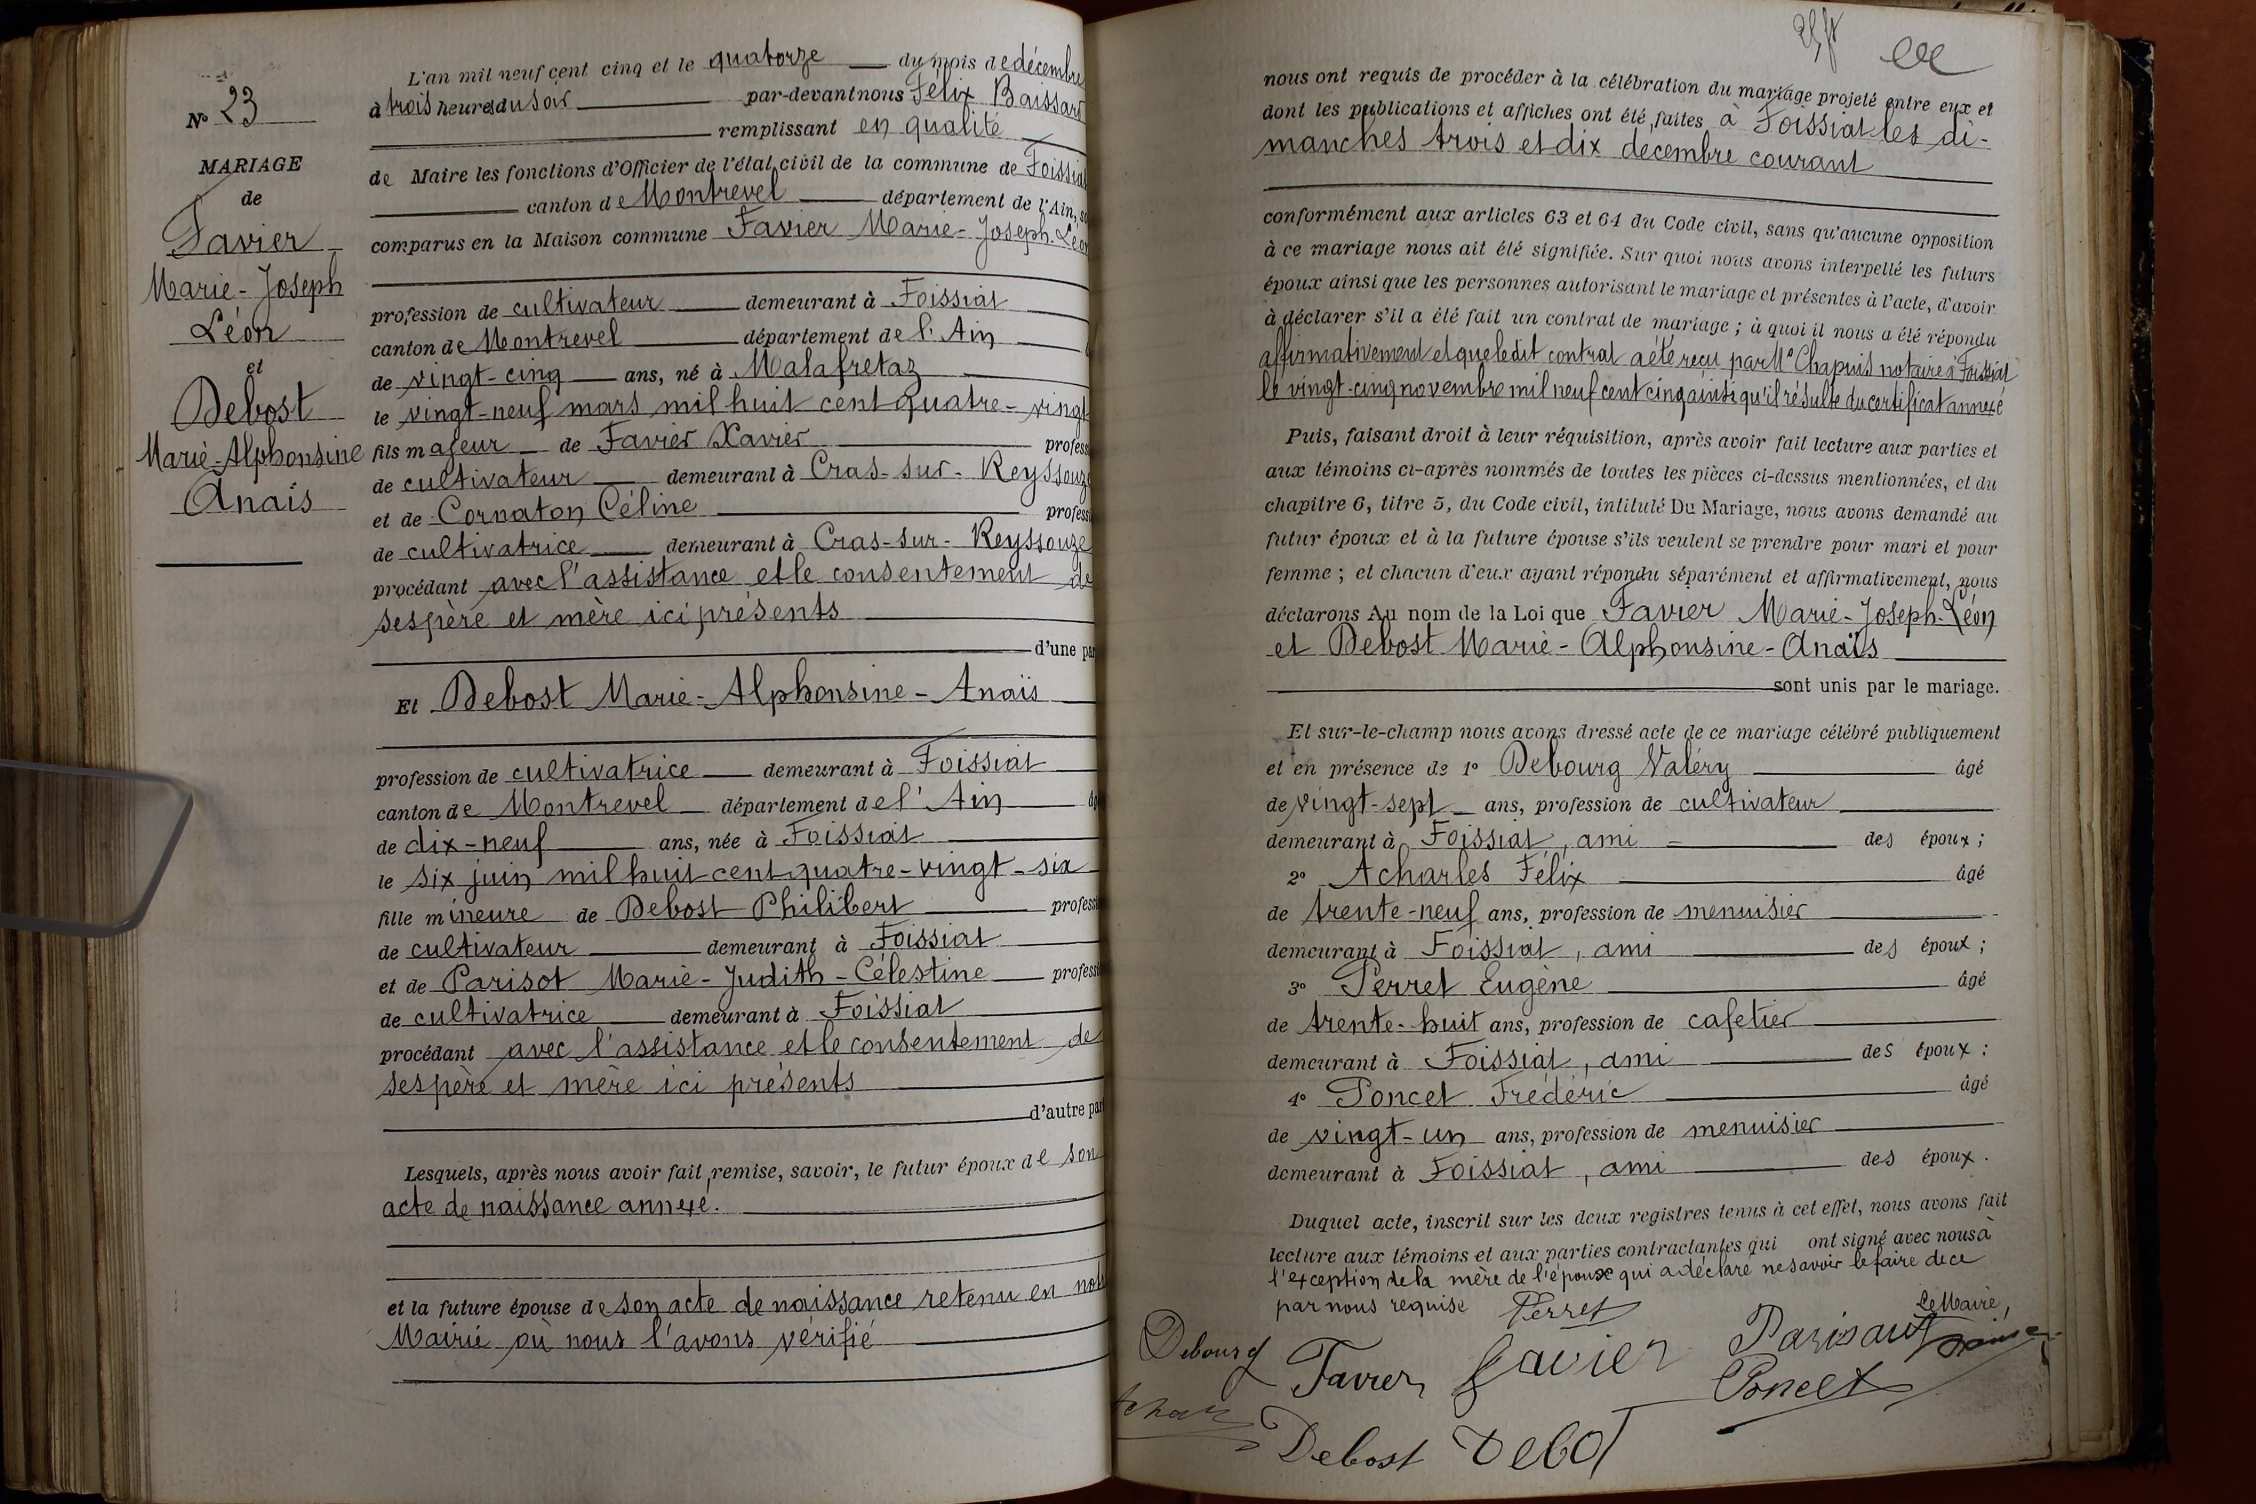 N° 23
MARIAGE
de
Favier
Marie-Joseph
Léon
et
Debost
Marie-Alphonsine
Anaïs
L'an mil neuf cent cinq et le quatorze du mois de décembre
à trois heures du soir par-devant nous Félix
remplissant en qualité
de Maire les fonctions d'Officier de l'état civil de la commune de Foissiat
canton de Montrevel département de l'Ain,
comparus en la Maison commune Favier Marie-Joseph-Léon
profession de cultivateur demeurant à Foissiat
canton de Montrevel département de l'Ain
de vingt-cinq ans, né à Malafretaz
le vingt-neuf mars mil huit cent quatre-vingt
fils majeur de Favier Xavier profess
de cultivateur demeurant à Cras-sur-Reyssouze
et de Cornaton Céline profess
de cultivatrice demeurant à Cras-sur-Reyssouze
procédant avec l'assistance et le consentement de
ses père et mère ici présents
d'une par
Et Debost Marie-Alphonsine-Anaïs
profession de cultivatrice demeurant à Foissiat
canton de Montrevel département de l'Ain
de dix-neuf ans, née à Foissiat
le six juin mil huit cent quatre-vingt-six
fille mineure de Debost Philibert profess
de cultivateur demeurant à Foissiat
et de Parisot Marie-Judith-Célestine profess
de cultivatrice demeurant à Foissiat
procédant avec l'assistance et le consentement de
ses père et mère ici présents
d'autre par
Lesquels, après nous avoir fait remise, savoir, le futur époux de son
acte de naissance annexé.
et la future épouse de son acte de naissance retenu en notre
Mairie où nous l'avons vérifié
nous ont requis de procéder à la célébration du mariage projeté entre eux et
dont les publications et affiches ont été faites à Foissiat les di-
manches trois et dix décembre courant
conformément aux articles 63 et 64 du Code civil, sans qu'aucune opposition
à ce mariage nous ait été signifiée. Sur quoi nous avons interpellé les futurs
époux ainsi que les personnes autorisant le mariage et présentes à l'acte, d'avoir
à déclarer s'il a été fait un contrat de mariage ; à quoi il nous a été répondu
affirmativement et que ledit contrat a été reçu par Me Chapuis notaire à Foissiat
le vingt-cinq novembre mil neuf cent cinq ainsi qu'il résulte du certificat annexé
Puis, faisant droit à leur réquisition, après avoir fait lecture aux parties et
aux témoins ci-après nommés de toutes les pièces ci-dessus mentionnées, et du
chapitre 6, titre 5, du Code civil, intitulé Du Mariage, nous avons demandé au
futur époux et à la future épouse s'ils veulent se prendre pour mari et pour
femme ; et chacun d'eux ayant répondu séparément et affirmativement, nous
déclarons Au nom de la Loi que Favier Marie-Joseph-Léon
et Debost Marie-Alphonsine-Anaïs
sont unis par le mariage.
Et sur-le-champ nous avons dressé acte de ce mariage célébré publiquement
et en présence de 1° Debourg Valéry âgé
de vingt-sept ans, profession de cultivateur
demeurant à Foissiat, ami des époux ;
2° Acharles Félix âgé
de trente-neuf ans, profession de menuisier
demeurant à Foissiat, ami des époux ;
3° Perret Eugène âgé
de trente-huit ans, profession de cafetier
demeurant à Foissiat, ami des époux ;
4° Poncet Frédéric âgé
de vingt-un ans, profession de menuisier
demeurant à Foissiat, ami des époux.
Duquel acte, inscrit sur les deux registres tenus à cet effet, nous avons fait
lecture aux témoins et aux parties contractantes qui ont signé avec nous à
l'exception de la mère de l'épouse qui a déclaré ne savoir le faire de ce
par nous requise Perret Le Maire,
Debourg Favier Favier Parisaut
Poncet
Debost Debot